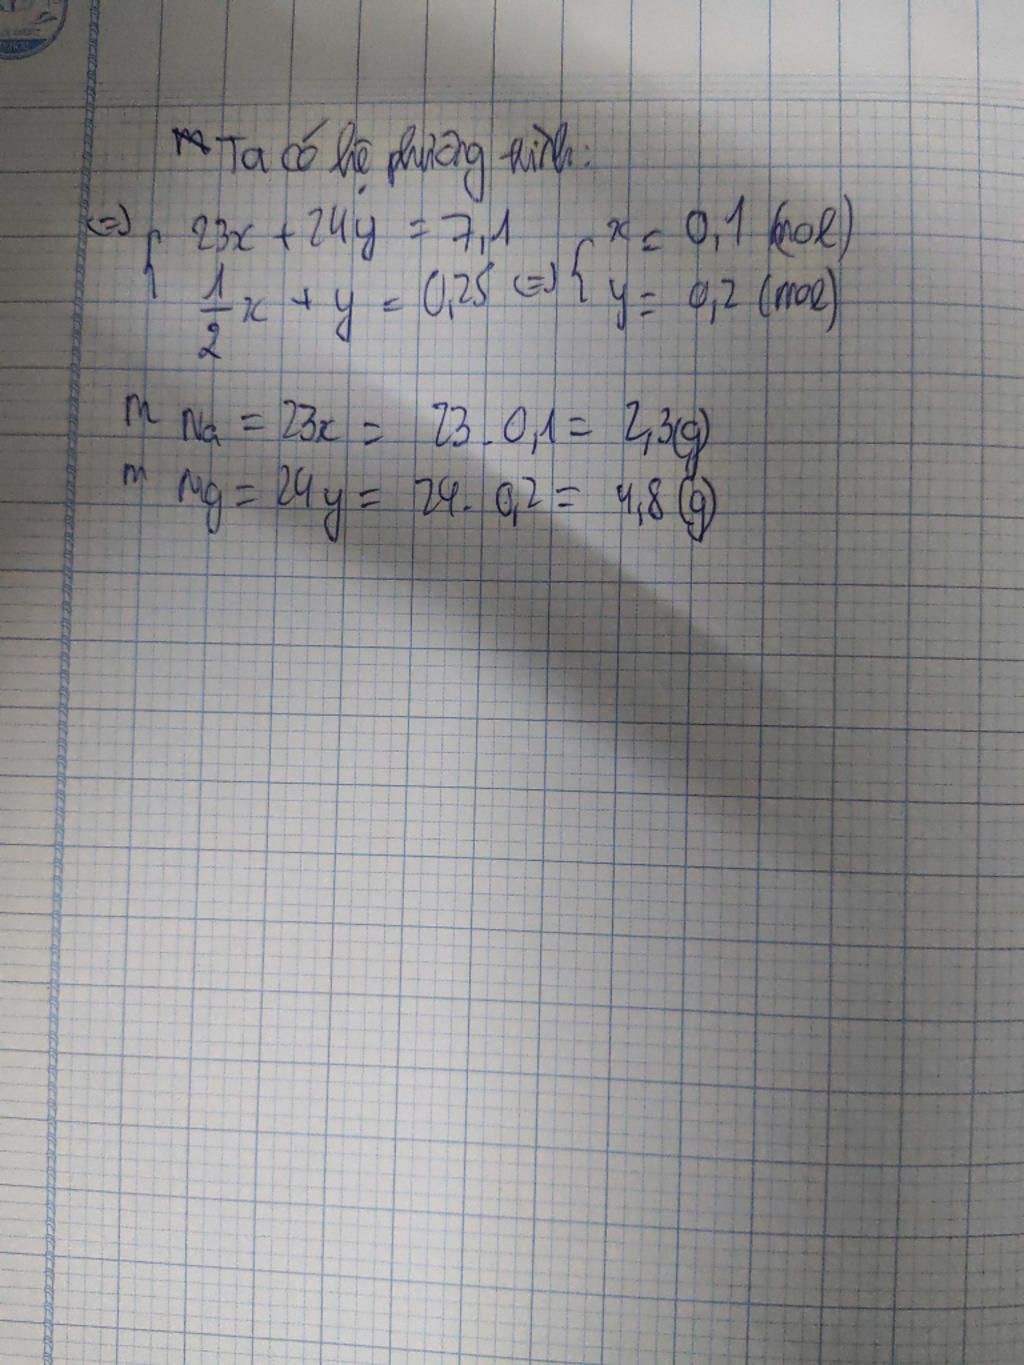 Ta có hệ phương trình:
<=> { 23x + 24y = 7,1 { x = 0,1 (mol)
1/2 x + y = 0,25 <=> y = 0,2 (mol)
m Na = 23x = 23 . 0,1 = 2,3(g)
m Mg = 24y = 24 . 0,2 = 4,8 (g)